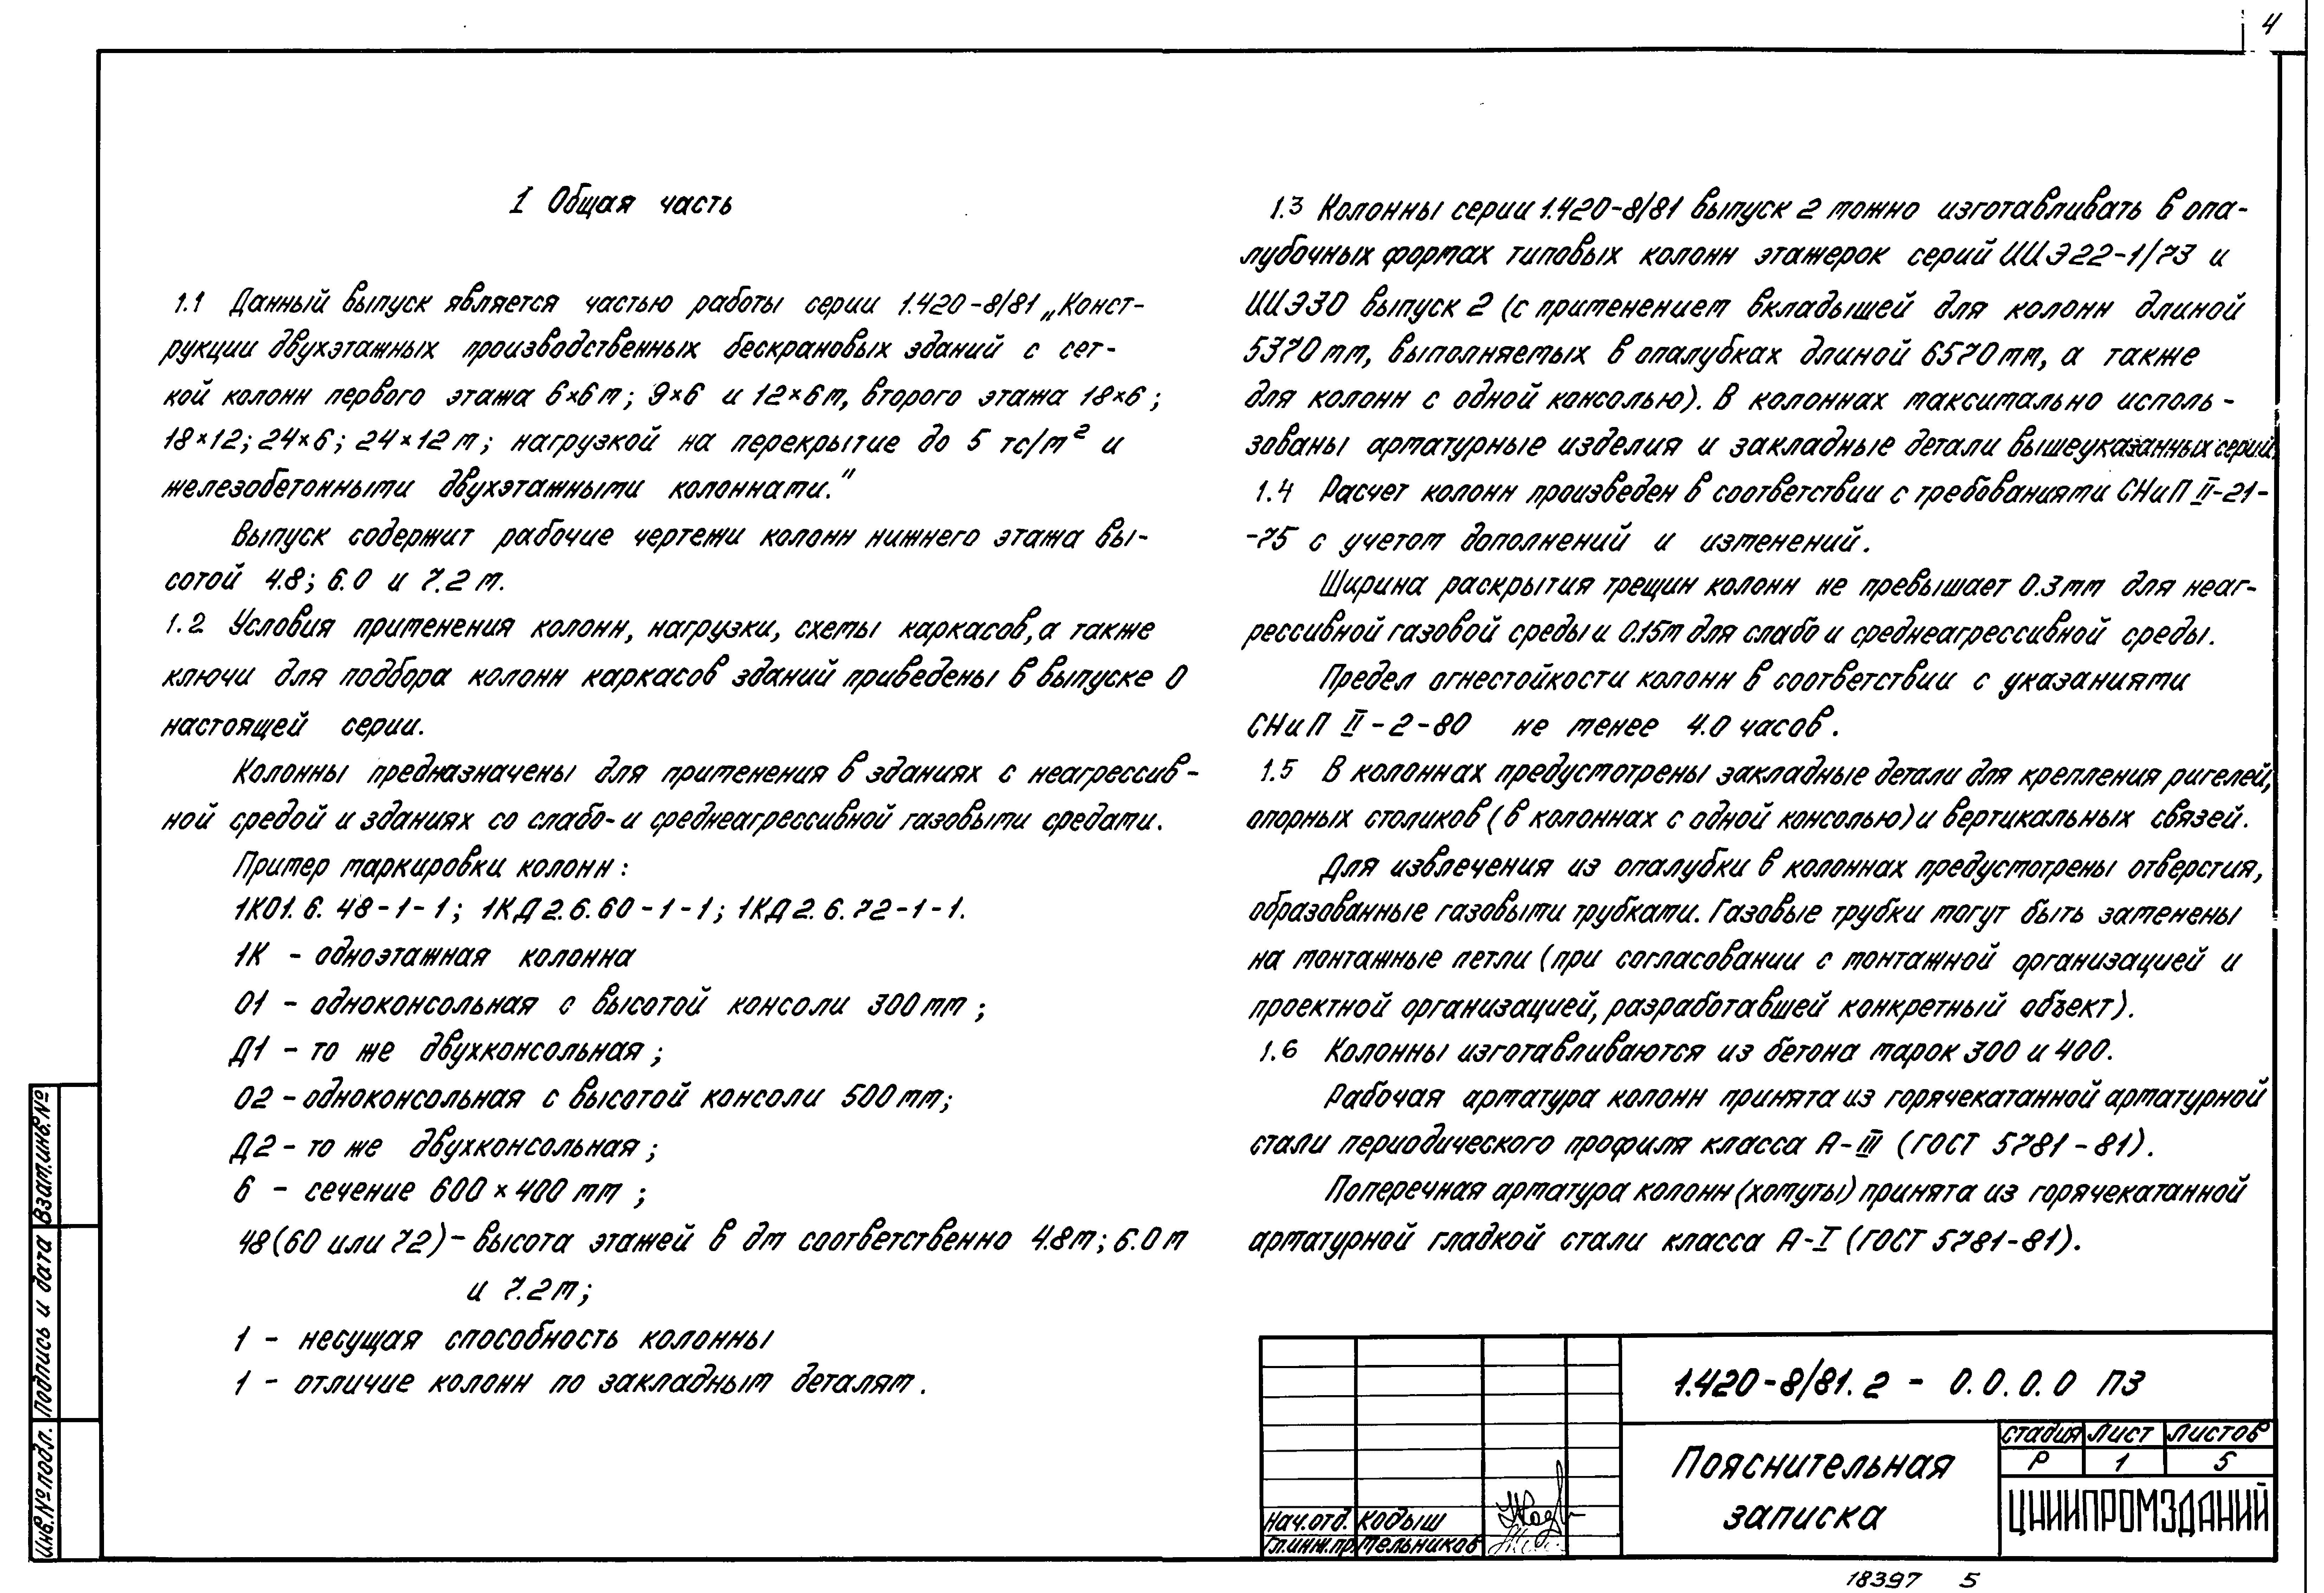 4
1 Общая часть
1.1 Данный выпуск является частью работы серии 1.420-8/81 „Конст-
рукции двухэтажных производственных бескрановых зданий с сет-
кой колонн первого этажа 6×6м; 9×6 и 12×6м, второго этажа 18×6;
18×12; 24×6; 24×12м; нагрузкой на перекрытие до 5 тс/м² и
железобетонными двухэтажными колоннами."
Выпуск содержит рабочие чертежи колонн нижнего этажа вы-
сотой 4.8; 6.0 и 7.2м.
1.2 Условия применения колонн, нагрузки, схемы каркасов, а также
ключи для подбора колонн каркасов зданий приведены в выпуске 0
настоящей серии.
Колонны предназначены для применения в зданиях с неагрессив-
ной средой и зданиях со слабо- и среднеагрессивной газовыми средами.
Пример маркировки колонн:
1К01.6.48-1-1; 1КД2.6.60-1-1; 1КД2.6.72-1-1.
1К - одноэтажная колонна
01 - одноконсольная с высотой консоли 300мм;
Д1 - то же двухконсольная;
02 - одноконсольная с высотой консоли 500мм;
Д2 - то же двухконсольная;
6 - сечение 600×400мм;
48(60 или 72) - высота этажей в дм соответственно 4.8м; 6.0м
и 7.2м;
1 - несущая способность колонны
1 - отличие колонн по закладным деталям.
1.3 Колонны серии 1.420-8/81 выпуск 2 можно изготавливать в опа-
лубочных формах типовых колонн этажерок серий ИИЭ22-1/73 и
ИИЭ30 выпуск 2 (с применением вкладышей для колонн длиной
5370мм, выполняемых в опалубках длиной 6570мм, а также
для колонн с одной консолью). В колоннах максимально исполь-
зованы арматурные изделия и закладные детали вышеуказанных серий.
1.4 Расчет колонн произведен в соответствии с требованиями СНиП II-21-
-75 с учетом дополнений и изменений.
Ширина раскрытия трещин колонн не превышает 0.3мм для неаг-
рессивной газовой среды и 0.15м для слабо и среднеагрессивной среды.
Предел огнестойкости колонн в соответствии с указаниями
СНиП II-2-80 не менее 4.0 часов.
1.5 В колоннах предусмотрены закладные детали для крепления ригелей,
опорных столиков (в колоннах с одной консолью) и вертикальных связей.
Для извлечения из опалубки в колоннах предусмотрены отверстия,
образованные газовыми трубками. Газовые трубки могут быть заменены
на монтажные петли (при согласовании с монтажной организацией и
проектной организацией, разработавшей конкретный объект).
1.6 Колонны изготавливаются из бетона марок 300 и 400.
Рабочая арматура колонн принята из горячекатанной арматурной
стали периодического профиля класса А-III (ГОСТ 5781-81).
Поперечная арматура колонн (хомуты) принята из горячекатанной
арматурной гладкой стали класса А-I (ГОСТ 5781-81).
Взам.инв.№
Подпись и дата
Инв.№ подл.
1.420-8/81.2 - 0.0.0.0 ПЗ
Пояснительная
записка
стадия лист листов
Р 1 5
ЦНИИПРОМЗДАНИЙ
Нач.отд. Кодыш
Гл.инж.пр. Мельников
18397 5